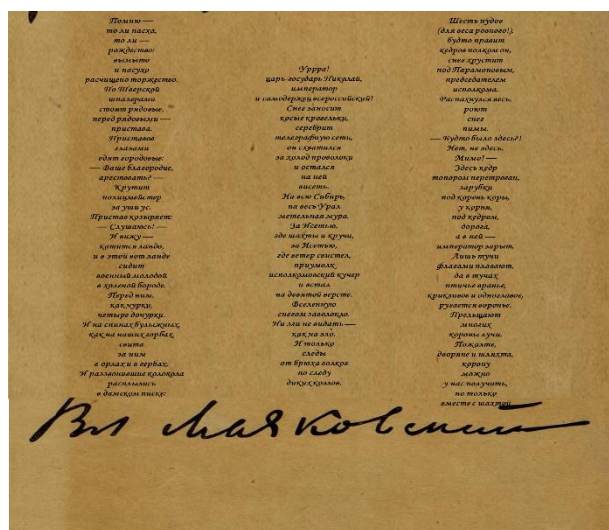 Помню —
то ли пасха,
то ли —
рождество:
вымыто
и насухо
расчищено торжество.
По Тверской
шпалерами
стоят рядовые,
перед рядовыми —
пристава.
Приставов
глазами
едят городовые:
— Ваше благородие,
арестовать? —
Крутит
полицмейстер
за уши ус.
Пристав козыряет:
— Слушаюсь! —
И вижу —
катится ландо,
и в этой вот ланде
сидит
военный молодой
в холеной бороде.
Перед ним,
как чурки,
четыре дочурки.
И на спинах булыжных,
как на наших горбах,
свита
за ним
в орлах и в гербах.
И раззвонившие колокола
расплылись
в дамском писке:
Уррра!
царь-государь Николай,
император
и самодержец всероссийский!
Снег заносит
косые кровельки,
серебрит
телеграфную сеть,
он схватился
за холод проволоки
и остался
на ней
висеть.
На всю Сибирь,
на весь Урал
метельная мура.
За Исетью,
где шахты и кручи,
за Исетью,
где ветер свистел,
приумолк
исполкомовский кучер
и встал
на девятой версте.
Вселенную
снегом заволокло.
Ни зги не видать —
как на зло.
И только
следы
от брюха волков
по следу
диких козлов.
Шесть пудов
(для веса ровного!),
будто правит
кедров полком он,
снег хрустит
под Парамоновым,
председателем
исполкома.
Распахнулся весь,
роют
снег
пимы.
— Будто было здесь?!
Нет, не здесь.
Мимо! —
Здесь кедр
топором перетроган,
зарубки
под корень коры,
у корня,
под кедром,
дорога,
а в ней —
император зарыт.
Лишь тучи
флагами плавают,
да в тучах
птичье вранье,
крикливое и одноглавое,
ругается воронье.
Прельщают
многих
короны лучи.
Пожалте,
дворяне и шляхта,
корону
можно
у нас получить,
но только
вместе с шахтой.
Вл Маяковский